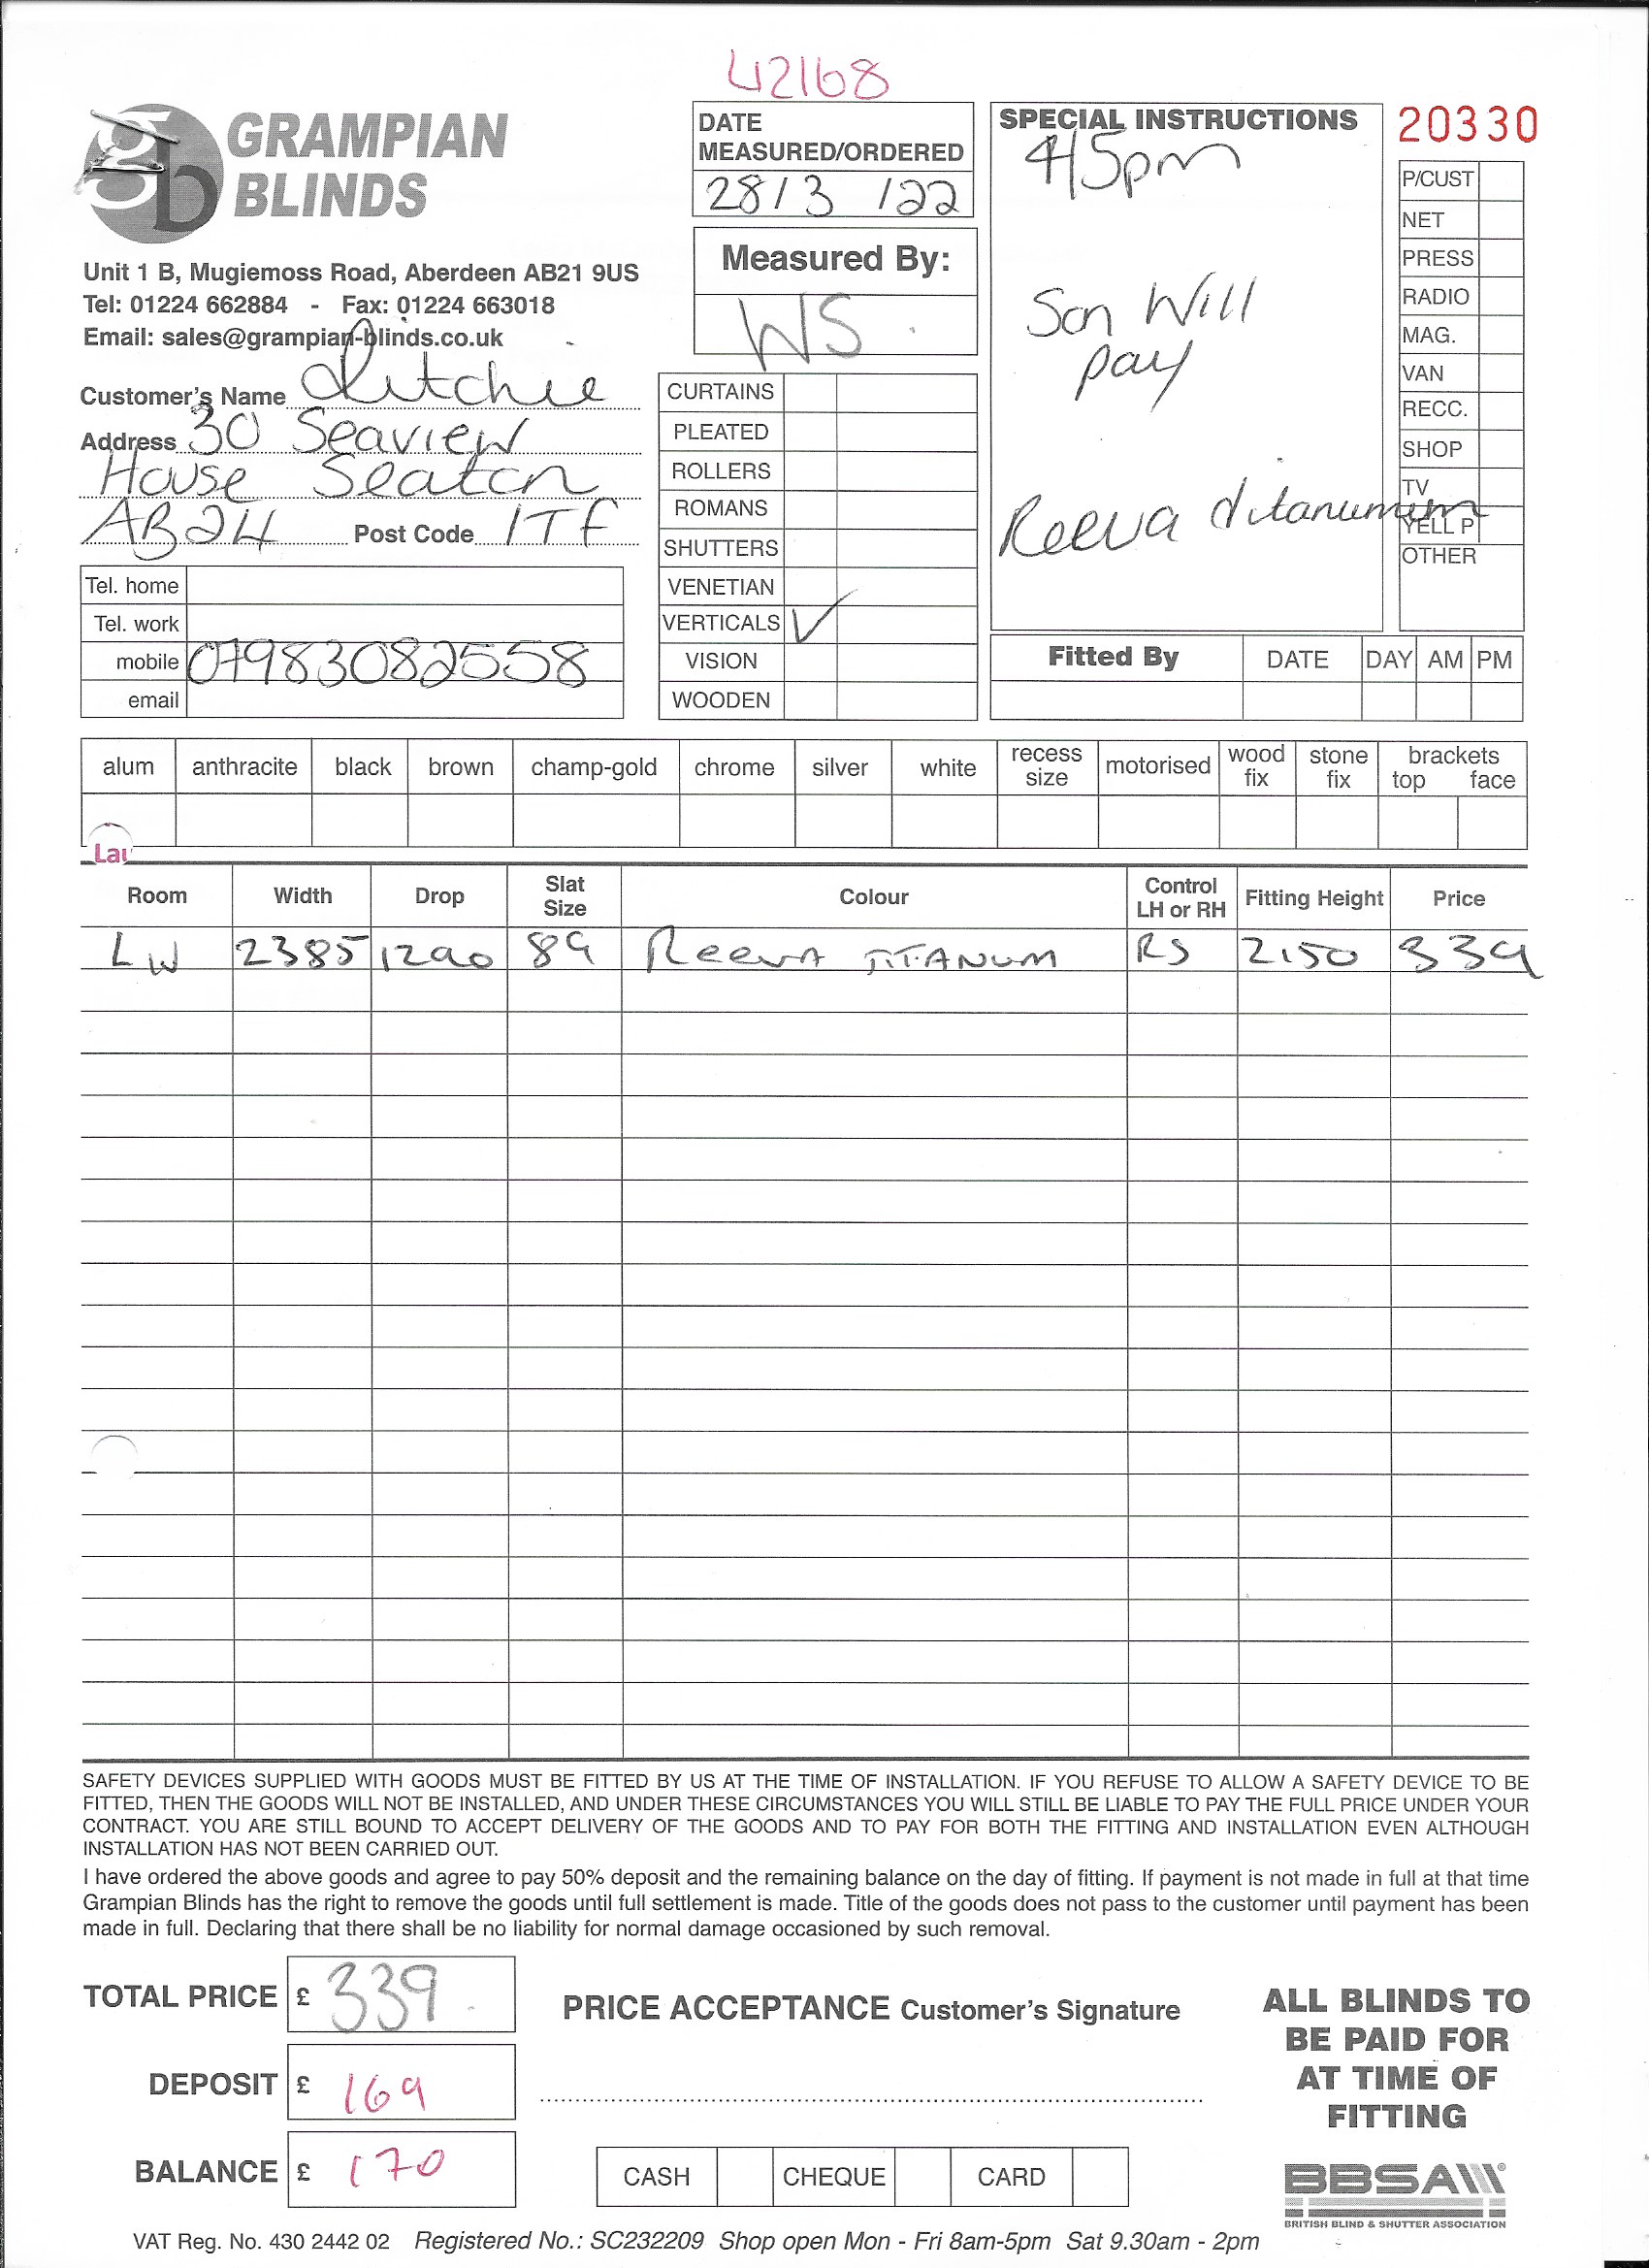 42168
GRAMPIAN
BLINDS
Unit 1 B, Mugiemoss Road, Aberdeen AB21 9US
Tel: 01224 662884 - Fax: 01224 663018
Email: sales@grampian-blinds.co.uk
Customer's Name Ritchie
Address 30 Seaview
House Seaton
AB24 Post Code 1TF
Tel. home
Tel. work
mobile 07983082558
email
DATE
MEASURED/ORDERED
28/3/22
Measured By:
WS
CURTAINS
PLEATED
ROLLERS
ROMANS
SHUTTERS
VENETIAN
VERTICALS ✓
VISION
WOODEN
SPECIAL INSTRUCTIONS
4/5pm
Son Will
pay
Reeva
20330
P/CUST
NET
PRESS
RADIO
MAG.
VAN
RECC.
SHOP
TV
YELL P
OTHER
Fitted By DATE DAY AM PM
alum anthracite black brown champ-gold chrome silver white recess size motorised wood fix stone fix brackets top face
Lau
Room Width Drop Slat Size Colour Control LH or RH Fitting Height Price
LW 2385 1290 89 Reeva TITANUM RS 2150 339
SAFETY DEVICES SUPPLIED WITH GOODS MUST BE FITTED BY US AT THE TIME OF INSTALLATION. IF YOU REFUSE TO ALLOW A SAFETY DEVICE TO BE
FITTED, THEN THE GOODS WILL NOT BE INSTALLED, AND UNDER THESE CIRCUMSTANCES YOU WILL STILL BE LIABLE TO PAY THE FULL PRICE UNDER YOUR
CONTRACT. YOU ARE STILL BOUND TO ACCEPT DELIVERY OF THE GOODS AND TO PAY FOR BOTH THE FITTING AND INSTALLATION EVEN ALTHOUGH
INSTALLATION HAS NOT BEEN CARRIED OUT.
I have ordered the above goods and agree to pay 50% deposit and the remaining balance on the day of fitting. If payment is not made in full at that time
Grampian Blinds has the right to remove the goods until full settlement is made. Title of the goods does not pass to the customer until payment has been
made in full. Declaring that there shall be no liability for normal damage occasioned by such removal.
TOTAL PRICE £ 339
DEPOSIT £ 169
BALANCE £ 170
PRICE ACCEPTANCE Customer's Signature
CASH CHEQUE CARD
ALL BLINDS TO
BE PAID FOR
AT TIME OF
FITTING
BBSA
BRITISH BLIND & SHUTTER ASSOCIATION
VAT Reg. No. 430 2442 02 Registered No.: SC232209 Shop open Mon - Fri 8am-5pm Sat 9.30am - 2pm